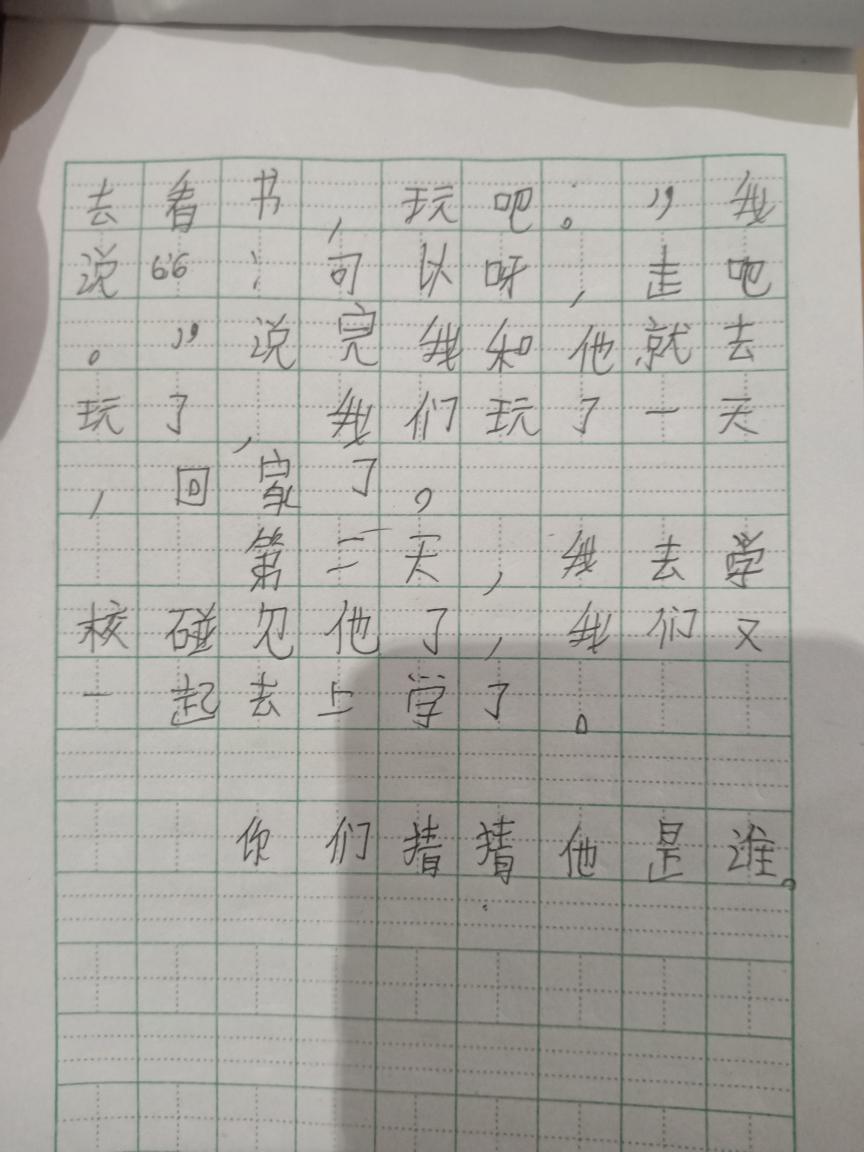 去看书，玩吧。”我
说“：可以呀，走吧
。”说完我和他就去
玩了，我们玩了一天
，回家了。
第二天，我去学
校碰见他了，我们又
一起去上学了。
你们猜猜他是谁。